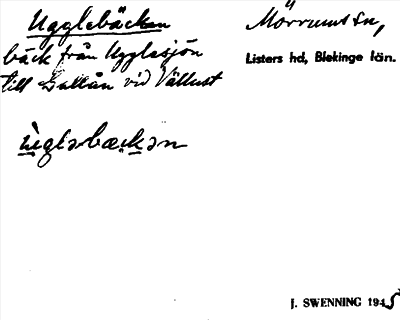 Ugglebäcken
Mörrums sn,
bäck från Ugglesjön
Listers hd, Blekinge län.
till Gallån vid Vällust
ùglabæckən
J. SWENNING 1945